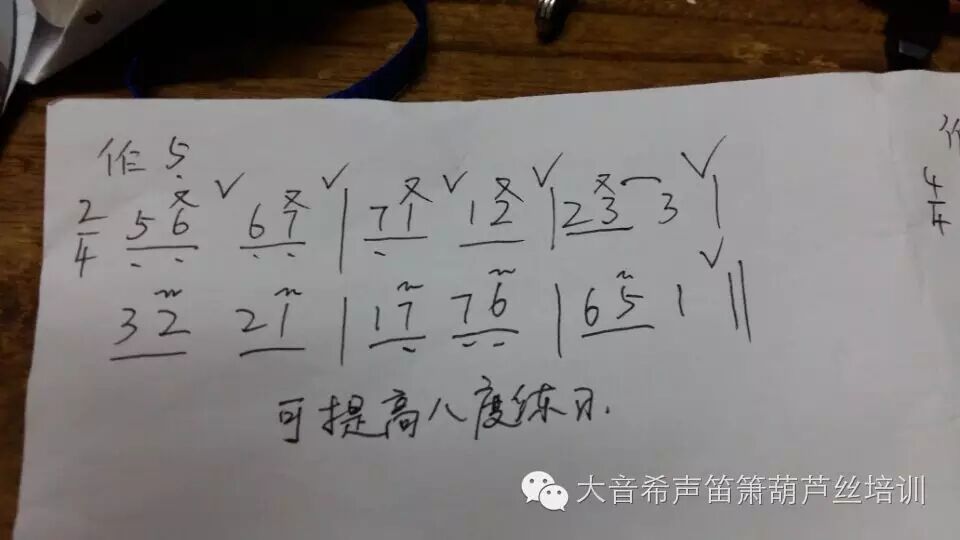 作5
2/4 5 6 ∨ 6 7 ∨ | 7 1 ∨ 1 2 ∨ | 2 3 3 ∨ |
3 2 2 1 | 1 7 7 6 | 6 5 1 ∨ ||
可提高八度练习.
作
4/4
大音希声笛箫葫芦丝培训